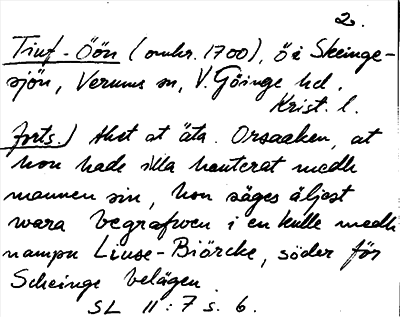 2.
Tiuf-Öön (omkr. 1700), ö i Skeinge-
sjön, Verums sn, V. Göinge hd,
Krist. l.
forts.) ähet at äta. Orsaaken, at
hon hade illa hanterat medh
mannen sin, hon säges äljest
wara begrafwen i en kulle medh
nampn Liuse-Biörcke, söder för
Scheinge belägen.
SL 11:7 s. 6.